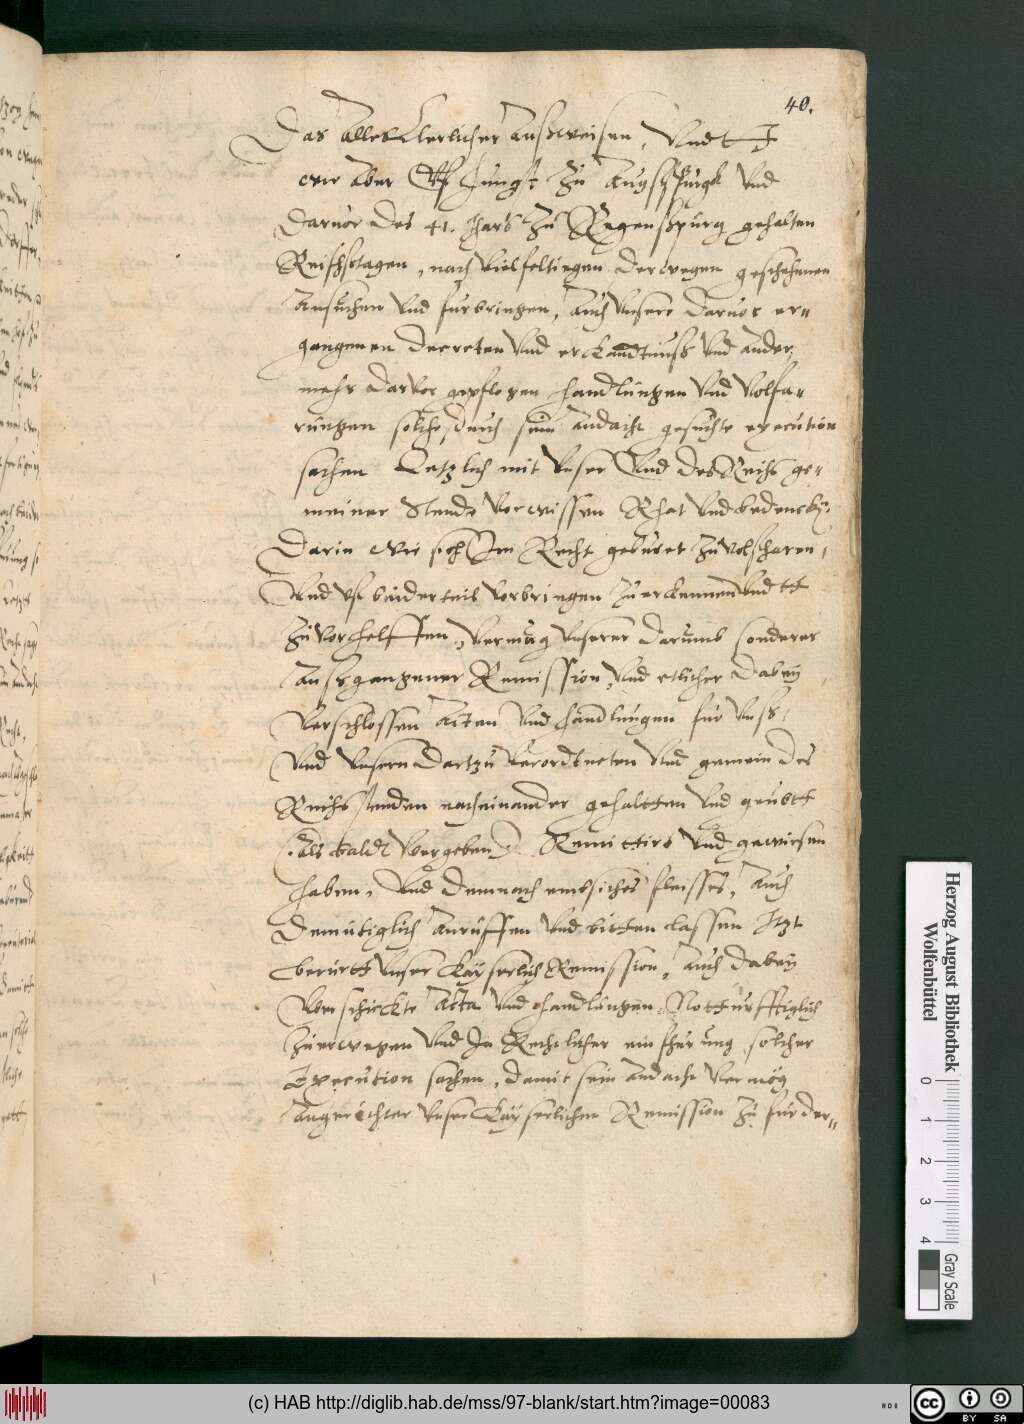 40.
Das Alles Clerlicher Außweisen, Undtt
wir aber Uff Jungst zu Augspurgk Und
Daruor des 41. Jhars zu Regenspurg gehalten
Reichstagen, nach vielfeltiegen derwegen geschehenen
Ansuchen Und furbringen, Auch Unsere daruor er„
gangenen Decreten Und erkandtnuß Und ander
mehr daruor gepflogen handlungen Und Volfa„
rungen solche, durch sein Andacht gesuchte execution
sachen Letzlich mit Unser Und des Reichs ge„
meiner Stende Vorwissen Rhat Und bedencken
Darin wir sich Im Recht geburet zuvolfharen,
Und Uf baiderteils Vorbringen zuerkennen Undtt
zuvorhelffen, Vermug Unserer darumb sonderer
Außgangener Remission, Und etlicher dabey
Verschlossen Acten Und handlungen fur Unß,
Und Unsern dartzu Verordtneten Und gemein des
Reichs stenden nacheinander gehaltten Und geubtt
(:als baldt Vergeben:) Remittirt Und gewiesen
haben, Und demnach embsiches fleisses, Auch
Demutiglich Anruffen Und bitten lassen Itzt
berurtt Unser Kayserlich Remission, Auch dabey
Uberschickte Acta Und handlungen, Notturfftiglich
zuerwegen Und In Rechtlicher einfhurung solcher
Execution sachen, damit sein Andacht Vermög
Angerechter Unser Kayserlichen Remission zu furder„
Herzog August Bibliothek
Wolfenbüttel
0 1 2 3 4
Gray Scale
(c) HAB http://diglib.hab.de/mss/97-blank/start.htm?image=00083
cc BY SA